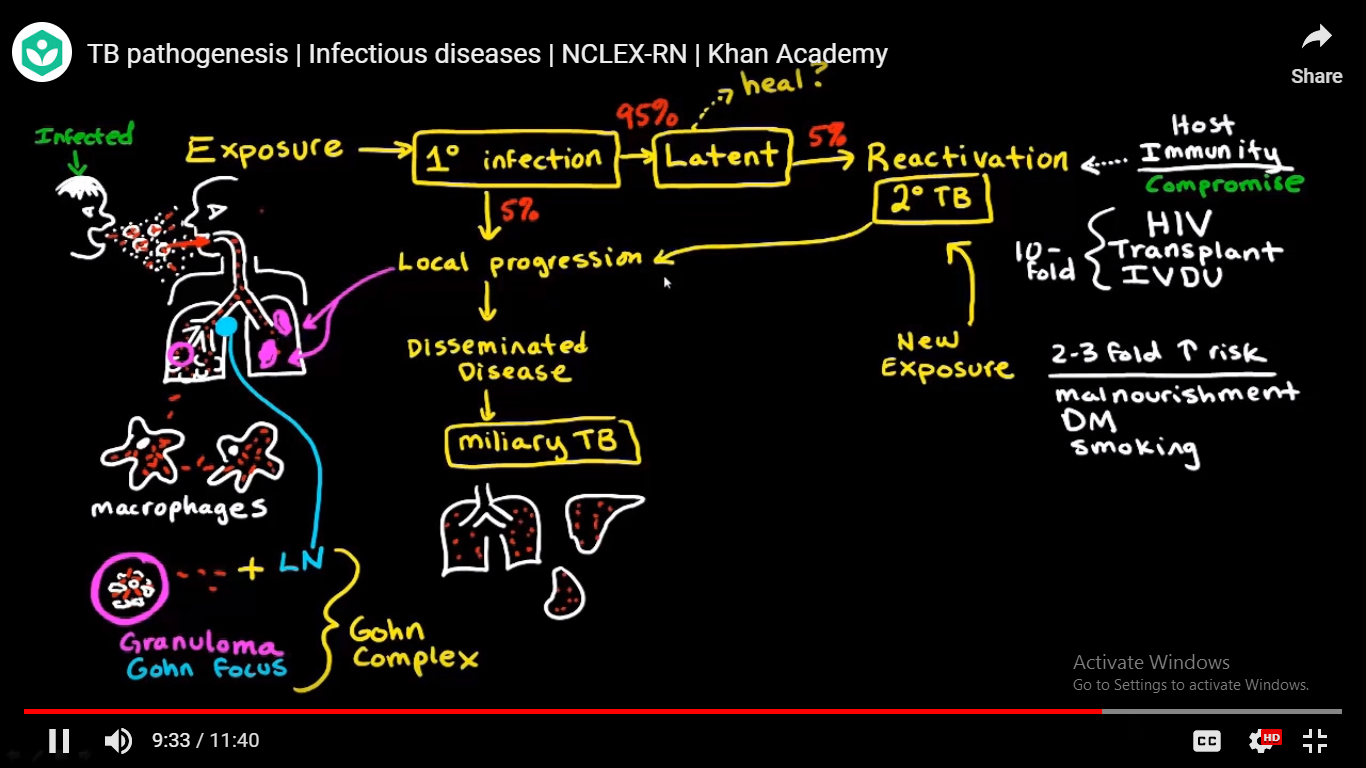 TB pathogenesis | Infectious diseases | NCLEX-RN | Khan Academy
Share
heal?
Infected
Exposure
1° infection
95%
Latent
5%
Reactivation
2° TB
Host
Immunity
Compromise
HIV
Transplant
IVDU
10-
fold
5%
Local progression
Disseminated
Disease
miliary TB
New
Exposure
2-3 fold ↑ risk
malnourishment
DM
smoking
macrophages
+ LN
Granuloma
Gohn Focus
Gohn
Complex
Activate Windows
Go to Settings to activate Windows.
9:33 / 11:40
CC
HD